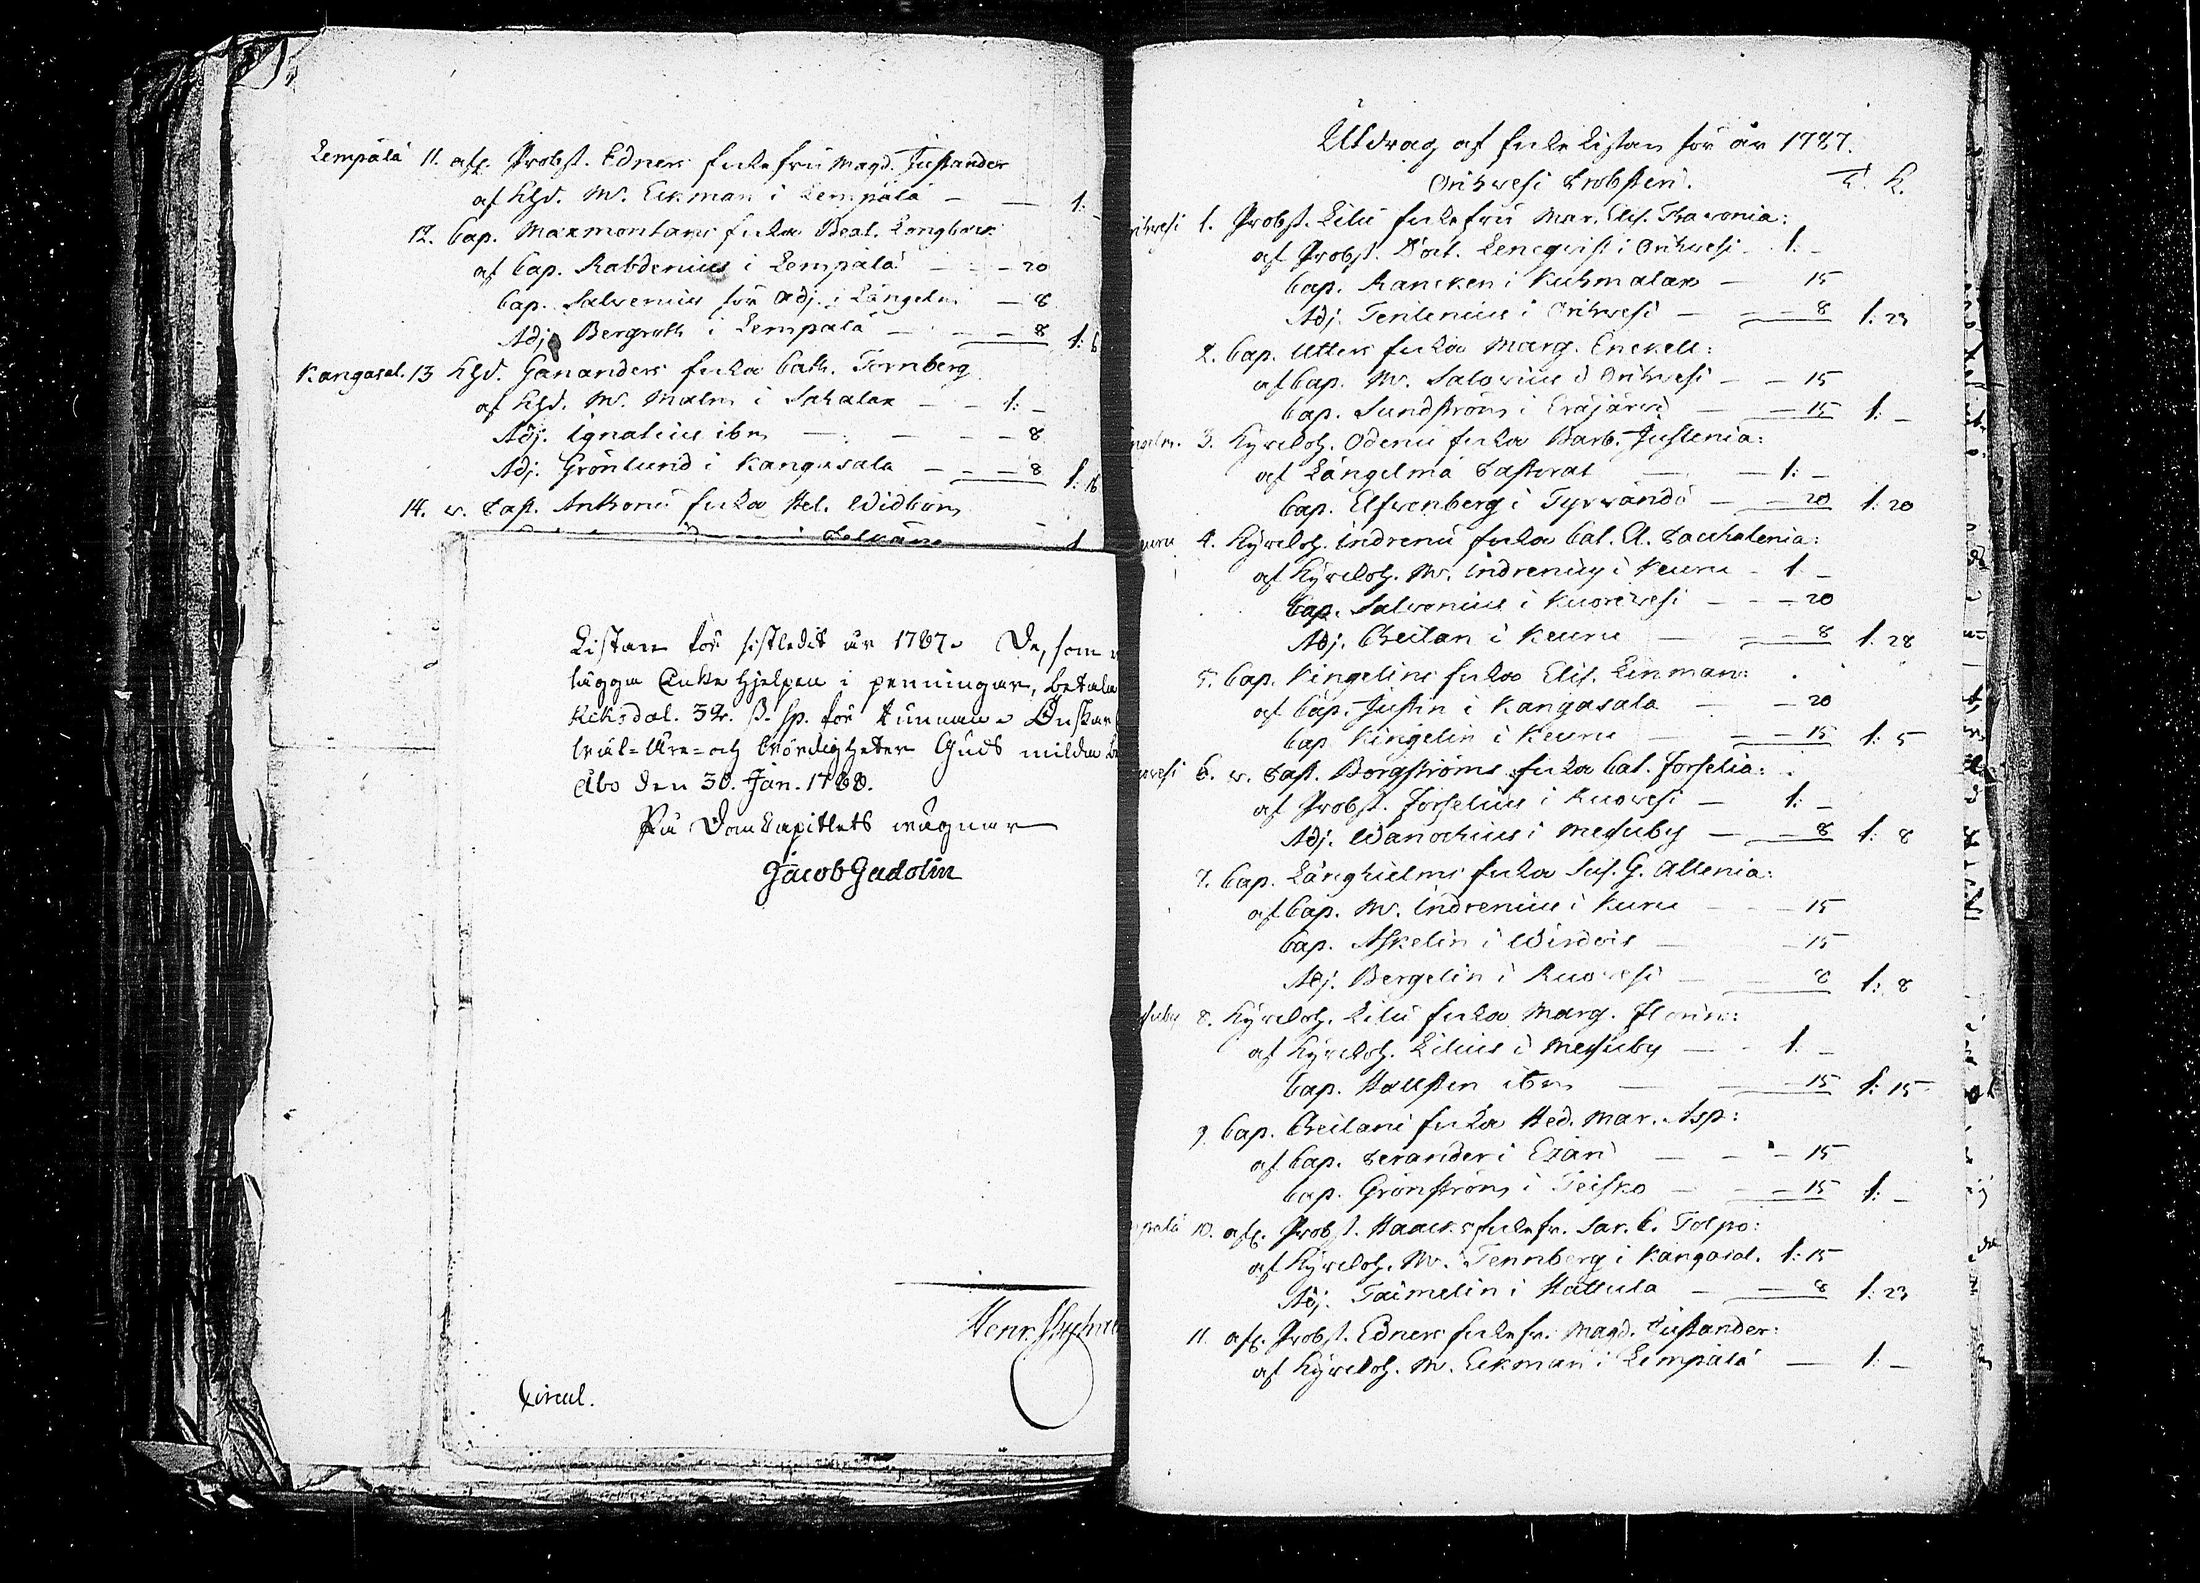 Lempälä 11. afl. Probst. Edners Enkefru Magd. Justander
af Khd. M. Eekman i Lempälä — — 1: –
12. Cap. Maxmontans Enka Beat. Longberg
af Cap. Rabdenius i Lempälä — — 20
Cap. Salvenius för Adj. i Längelm. — 8
Adj. Bergroth i Lempälä — — 8 1: 6
Kangasal. 13 Khd. Gananders Enka Cath. Tornberg
af Khd. M. Malm i Sahalax — – 1: –
Adj. Ignatius ibm — – – 8
Adj. Grönlund i Kangasala — – – 8 1: 16
14. v. Past. Anthoni Enka Hel. Widbom
Listan för sistledit år 1787. De, som
lägga Enke hjelpen i penningar, betala
Riksdal. 32. ß. sp. för tunnan. Önskar
Äre- och Wördigheter Guds milda
Åbo den 30. Jan. 1788.
På Domkapitlets wägnar
Jacob Gadolin
Henr.
Circul.
Utdrag af Enke Listan för år 1787.
Orihvesi Probsteri. T. K.
1. Probst. Lilii Enkefru Mar. Elis. Thavonia:
af Probst. Doct. Lencqvist i Orihvesi – 1: –
Cap. Rancken i Kuhmalax — 15
Adj. Terlenius i Orihvesi — – – 8 1: 23
2. Cap. Utters Enka Marg. Enckell:
af Cap. M. Salovius i Orihvesi – – 15
Cap. Sundström i Eräjärvi — – 15 1: –
3. Kyrckoh. Odenii Enka Barb. Juslenia:
af Längelmä Pastorat — – 1: –
Cap. Elfvenberg i Tyrvändö – – 20 1: 20
4. Kyrckoh. Indrenii Enka Cat. El. Pacchalenia:
af Kyrckoh. M. Indrenius i Keuru – 1 –
Cap. Salvenius i Kuorevesi – – – 20
Adj. Chreilan i Keuru — – – 8 1: 28
5. Cap. Kingelins Enka Elis. Linman:
af Cap. Justin i Kangasala – – 20
Cap. Kingelin i Keuru — – – 15 1: 5
6. v. Past. Borgströms Enka Cat. Forselia:
af Probst. Forselius i Ruovesi – 1: –
Adj. Wanochius i Messuby — – 8 1: 8
7. Cap. Långhielms Enka Sus. G. Allenia:
af Cap. M. Indrenius i Kuru – – 15
Cap. Askelin i Wirdois — – 15
Adj. Bergelin i Ruovesi — – 8 1: 8
8. Kyrckoh. Lilii Enka Marg. Florin:
af Kyrckoh. Lilius i Messuby — – 1. –
Cap. Hallsten ibm — – – 15 1: 15
9. Cap. Chreilani Enka Hed. Mar. Asp:
af Cap. Perander i Etzäri – – – 15
Cap. Grönström i Teisko — – – 15 1: –
10. afl. Probst. Haacks Enkefr. Sar. C. Tolpo:
af Kyrckoh. M. Tennberg i Kangasal. 1: 15
Adj. Taimelin i Hattula – – – 8 1: 23
11. afl. Probst. Edners Enkefr. Magd. Justander:
af Kyrckoh. M. Eekman i Lempälä — 1: –